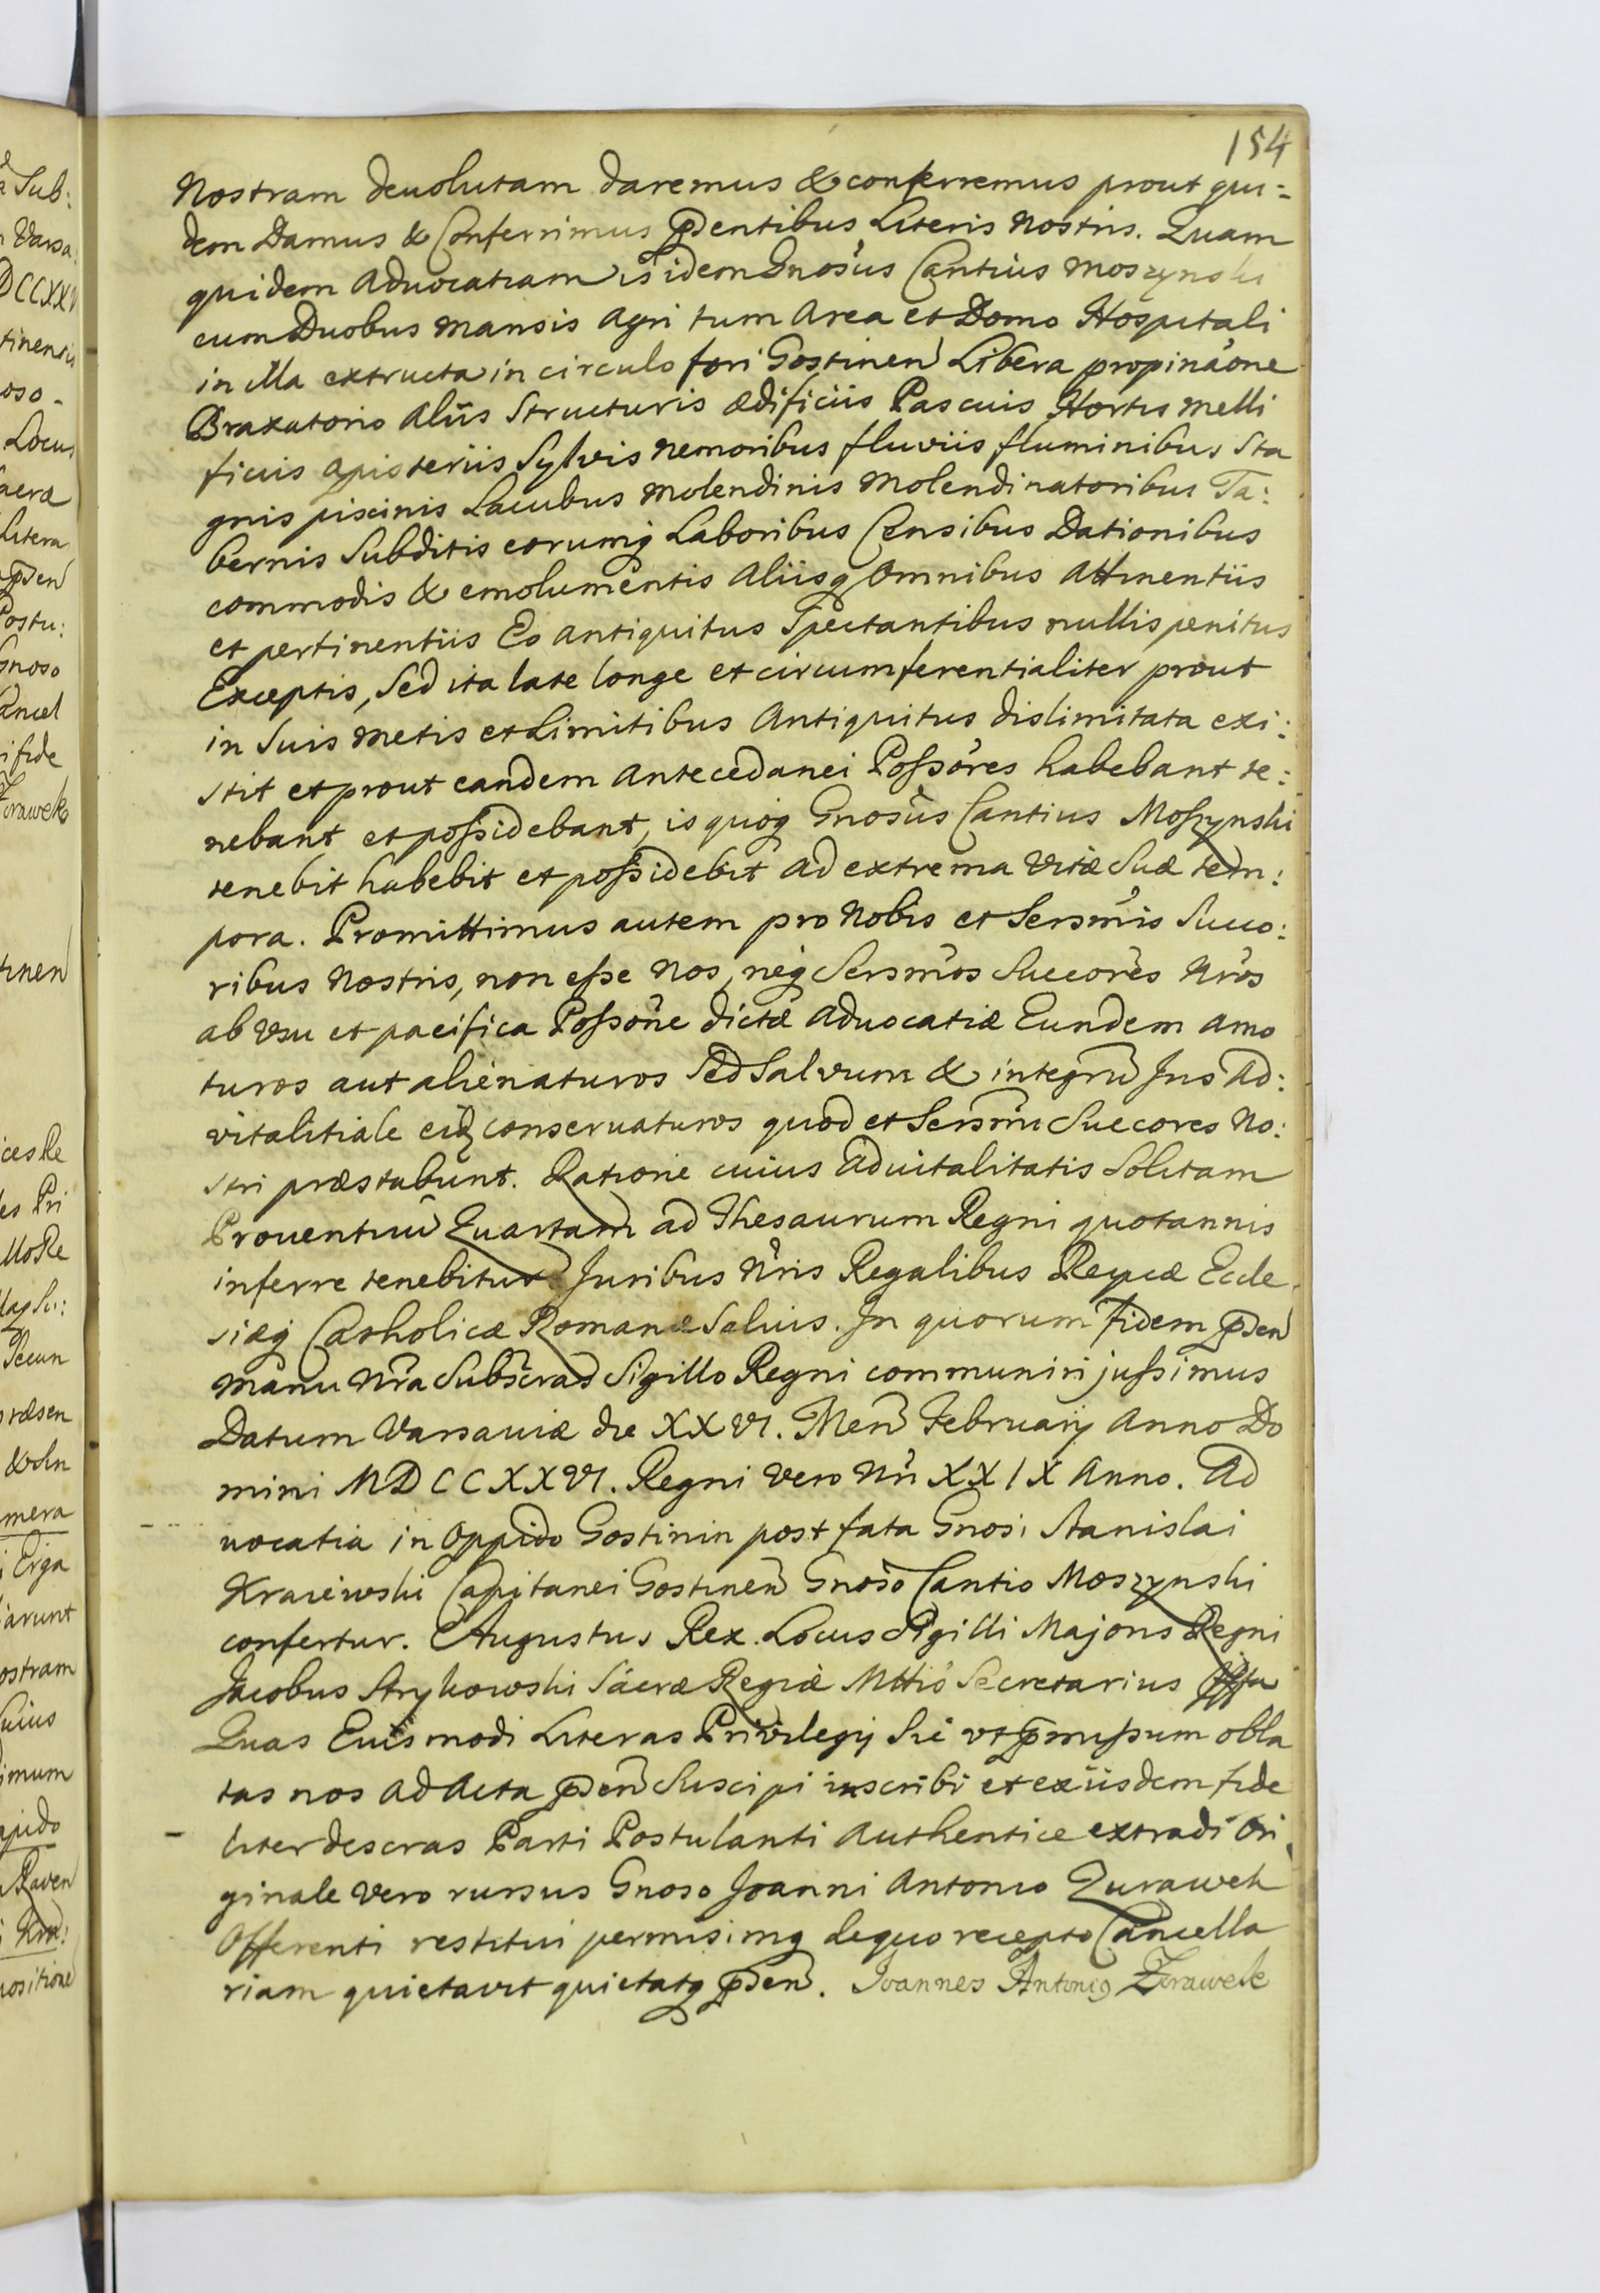 154
Nostram devolutam daremus & conferremus prout qui=
dem Damus & Conferrimus pdentibus Literis Nostris. Quam
quidem Advocatiam is idem Gnosus Cantius Moszynski
cum Duobus mansis Agri tum Area et Domo Hospitali
in illa extructa in circulo fori Gostinen Libera propinaone
Braxatorio Aliis Structuris ædificiis Pascuis Hortis melli
ficiis apisteriis Sylvis nemoribus fluviis fluminibus sta
gnis piscinis Lacubus molendinis molendinatoribus Ta:
bernis Subditis eorumq Laboribus Censibus Dationibus
commodis & emolumentis Aliisq Omnibus Attinentiis
et pertinentiis Eo antiquitus Spectantibus nullis penitus
Exceptis, Sed ita late longe et circumferentialiter prout
in Suis metis et Limitibus Antiquitus dislimitata exi:
stit et prout eandem antecedanei Possores habebant te:
nebant et possidebant, is quoq Gnosus Cantius Moszynski
tenebit habebit et possidebit ad extrema vitæ Suæ tem:
pora. Promittimus autem pro Nobis et Sersmis Succo:
ribus Nostris, non esse Nos, neq Sersmos Succores Nros
ab usu et pacifica Possone dictæ Advocatiæ Eundem amo
turos aut alienaturos Sed Salvum & integru Jus Ad:
vitalitiale eidz conservaturos quod et Sersmi Succores No:
stri præstabunt. Ratione cuius Advitalitatis Solitam
Proventuu Quartam ad Thesaurum Regni quotannis
inferre tenebitur Juribus Nris Regalibus Reipcæ Eccle
siæq Catholicæ Romanæ Salvis. In quorum Fidem pden
manu Nra Subscras Sigillo Regni communiri jussimus
Datum Varsaviæ die XXVI. Men Februarij Anno Do
mini MDCCXXVI. Regni vero Nri XXIX Anno. Ad
vocatia in Oppido Gostinin post fata Gnosi Stanislai
Kraiewski Capitanei Gostinen Gnoso Cantio Moszynski
confertur. Augustus Rex. Locus Sigilli Majoris Regni
Jacobus Strykowski Sacræ Regiæ Mttis Secretarius
Quas Euismodi Literas Privilegij Sic vt pmissum obla
tas nos ad Acta pden Suscipi inscribi et ex iisdem fide
liter descras Parti Postulanti Authentice extradi Ori
ginale vero rursus Gnoso Joanni Antonio Zurawek
Offerenti restitui permisimq de quo recepto Cancella
riam quietavit quietatq pden. Joannes Antonig Zurawek